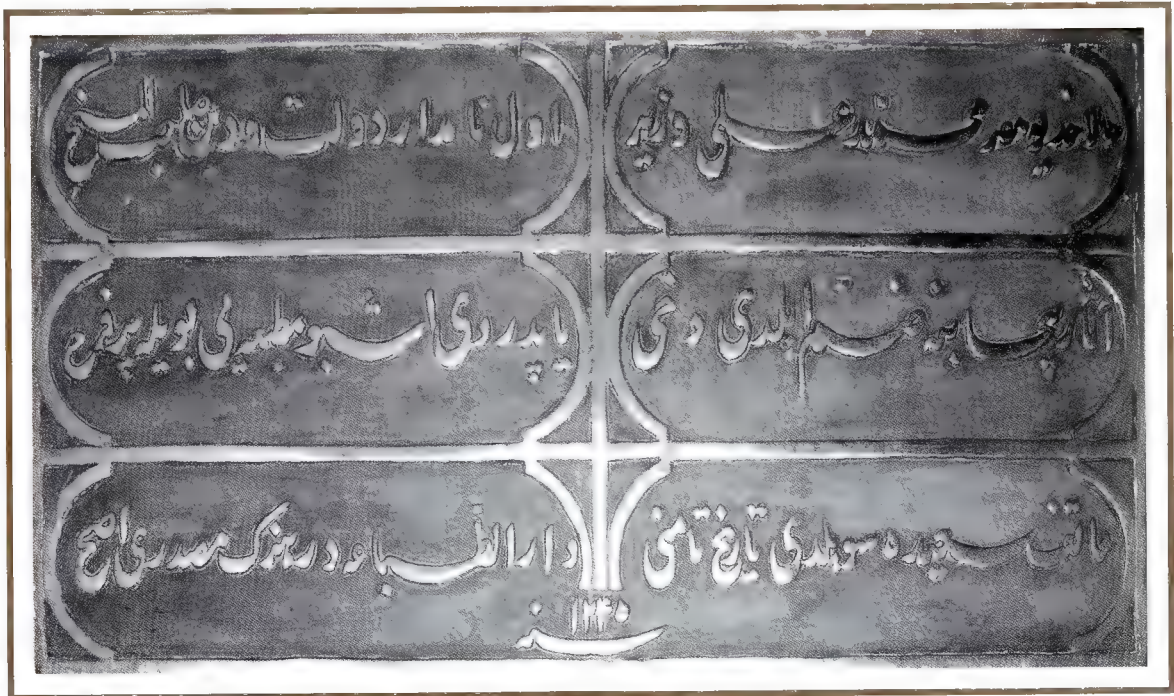 حالا خديو مصر محمد علی وزير
اول نامدار دولت و دين كاسب المنح
آثار بی حسابنه ضم ايلدی دخی
ياپدردی اشبو مطبعه‌يی بويله پر فرح
هاتف سعيده سويلدی تاريخ تامنی
دار الطباعه در هنرك مصدری اصح
سنه ١٢٣٥